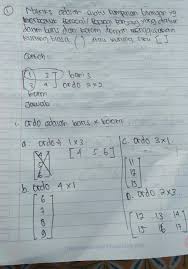 ① Matriks adalah suatu kumpulan bilangan yg
berbentuk persegi / persegi panjang yang diatur
dalam baris dan kolom dengan menggunakan
kurung biasa ( ) atau kurung siku [ ]
Contoh :
[1 2] baris
[3 4] ordo 2x2
kolom
Jawab
1. ordo adalah baris x kolom
a. ordo 1x3 c. ordo 3x1
[4 5 6] [11
12
13]
b. ordo 4x1 D. ordo 2x3
[6
7
8
9] [12 13 14
15 16 17]